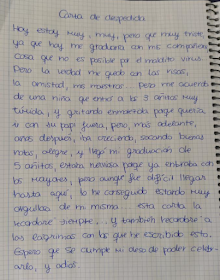 Carta de despedida
Hoy estoy muy, muy, pero que muy triste,
ya que hoy me graduaría con mis compañeros,
cosa que no es posible por el maldito virus.
Pero la verdad me quedo con las risas,
la amistad, me maestros... Pero me acuerdo
de una niña que entró a los 3 años muy
tímida, y gritando enmadrada porque quería
ir con su papi fuera, pero más adelante,
años después, iba creciendo, sacando buenas
notas, alegre, y llegó mi graduación de
5 añitos, estaba nerviosa porque ya entraba con
los mayores, pero aunque fue difícil llegar
hasta aquí, lo he conseguido estando muy
orgullosa de mi misma. esta carta la
recordaré siempre, y también recordaré a
las lágrimas con las que he escribido esto.
Espero que se cumpla mi deseo de poder celebr-
arlo, y adiós.